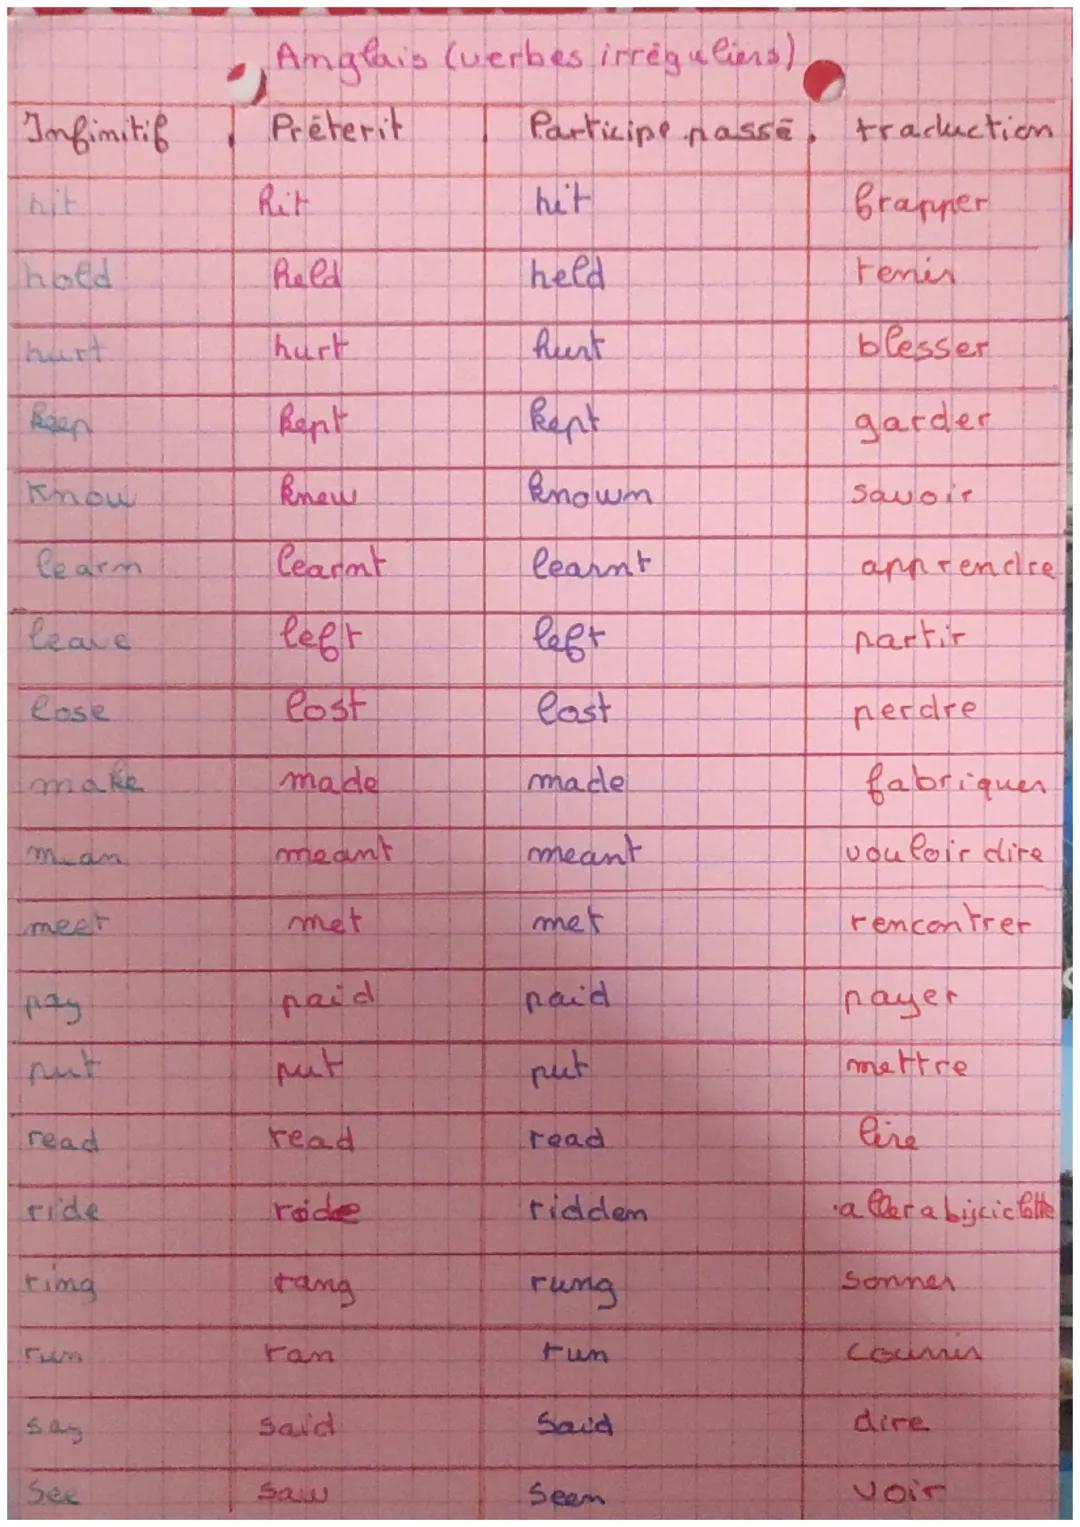 Anglais (verbes irréguliers)
Infinitif Prêterit Participe passé traduction
hit hit hit frapper
hold held held tenir
hurt hurt hurt blesser
keep kept kept garder
know knew known savoir
learn learnt learnt apprendre
leave left left partir
lose lost lost perdre
make made made fabriquer
mean meant meant vouloir dire
meet met met rencontrer
pay paid paid payer
put put put mettre
read read read lire
ride rode ridden aller a bijciclette
ring rang rung sonner
run ran run courrir
say said said dire
see saw seen voir